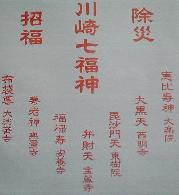 除災
川崎七福神
招福
恵比寿神 大楽院
大黒天 西明寺
毘沙門天 東樹院
弁財天 宝蔵寺
福禄寿 安養寺
寿老神 無量寺
布袋尊 大楽寺